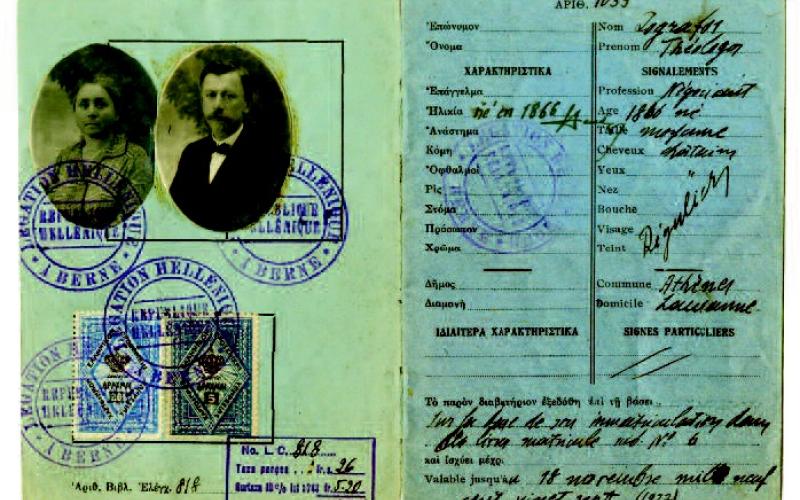 ΑΡΙΘ. 1033
Ἐπώνυμον
Ὄνομα
ΧΑΡΑΚΤΗΡΙΣΤΙΚΑ
Ἐπάγγελμα
Ἡλικία né en 1866
Ἀνάστημα
Κόμη
Ὀφθαλμοί
Ρίς
Στόμα
Πρόσωπον
Χρῶμα
Δῆμος
Διαμονή
ΙΔΙΑΙΤΕΡΑ ΧΑΡΑΚΤΗΡΙΣΤΙΚΑ
Nom Zografos
Prenom
SIGNALEMENTS
Profession Négociant
Age 1866 né
Taille moyenne
Cheveux châtains
Yeux "
Nez
Bouche
Visage
Teint
Régulier
Commune Athènes
Domicile Lausanne
SIGNES PARTICULIERS
Τὸ παρὸν διαβατήριον ἐξεδόθη ἐπὶ τῇ βάσει
Sur la base de son immatriculation dans
matricule No 6
καὶ ἰσχύει μέχρι
Valable jusqu'au 18 novembre mil neuf
cent vingt sept (1927)
LEGATION HELLENIQUE
REPUBLIQUE
HELLENIQUE
A BERNE
LEGATION HELLENIQUE
REPUBLIQUE
HELLENIQUE
A BERNE
LEGATION HELLENIQUE
REPUBLIQUE
HELLENIQUE
A BERNE
ΔΡΑΧΜΑΙ
20
ΔΡΑΧΜΑΙ
5
No. L. C. 818
Taxe perçue Fr. s. 26
fr 5.20
Ἀριθ. Βιβλ. Ἐλέγχ. 818